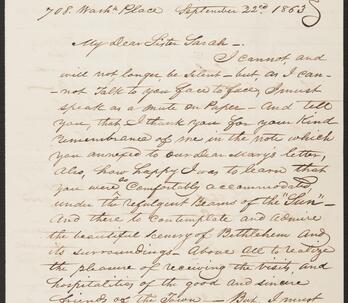 708. Washn. Place September 22nd 1863
My Dear Sister Sarah -.
I cannot, and
will not longer be silent - but, as I can-
not Talk to you face to face, I must
speak as a mute on Paper - And tell
you, that I thank you for your kind
remembrance of me in the note which
you annexed to our Dear Mary's letter,
Also, how happy I was to learn that
you were so Comfortably accommodated,
under the Refulgent Beams of the "Sun" -
And there to Contemplate and Admire
the beautiful scenery of Bethlehem And
its surroundings - Above all to realize
the pleasure of receiving the visits, and
hospitalities of the good and sincere
friends of the Town - But I must